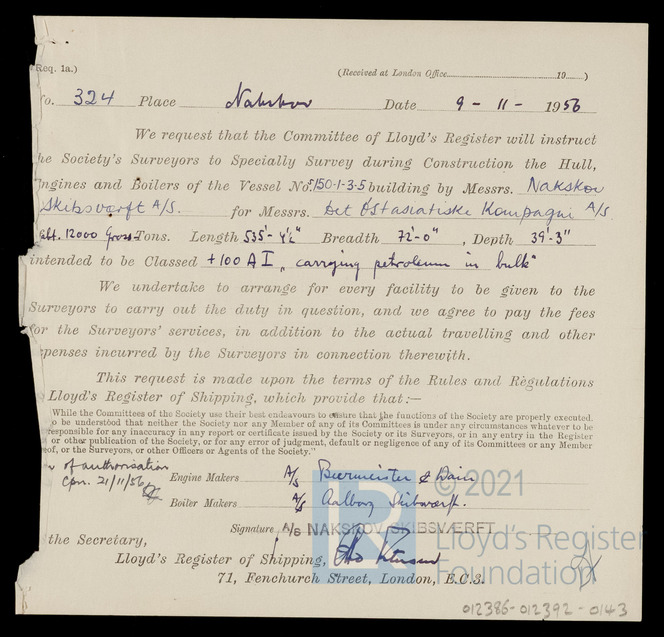 Req. 1a.) (Received at London Office 19 )
No. 324 Place Nakskov Date 9 - 11 - 1956
We request that the Committee of Lloyd's Register will instruct
the Society's Surveyors to Specially Survey during Construction the Hull,
Engines and Boilers of the Vessel No. 150-1-3-5 building by Messrs. Nakskov
Skibsværft A/S. for Messrs. Det Østasiatiske Kompagni A/S.
abt. 12000 Gross Tons. Length 535'- 4½" Breadth 72'-0", Depth 39'-3"
intended to be Classed +100 A I „carrying petroleum in bulk"
We undertake to arrange for every facility to be given to the
Surveyors to carry out the duty in question, and we agree to pay the fees
for the Surveyors' services, in addition to the actual travelling and other
expenses incurred by the Surveyors in connection therewith.
This request is made upon the terms of the Rules and Regulations
Lloyd's Register of Shipping, which provide that:—
"While the Committees of the Society use their best endeavours to ensure that the functions of the Society are properly executed,
to be understood that neither the Society nor any Member of any of its Committees is under any circumstances whatever to be
responsible for any inaccuracy in any report or certificate issued by the Society or its Surveyors, or in any entry in the Register
or other publication of the Society, or for any error of judgment, default or negligence of any of its Committees or any Member
thereof, or the Surveyors, or other Officers or Agents of the Society."
of authorisation
21/11/56
Engine Makers A/S Burmeister & Wain
Boiler Makers A/S Aalborg Skibsværft.
Signature A/S NAKSKOV SKIBSVÆRFT
the Secretary,
Lloyd's Register of Shipping,
71, Fenchurch Street, London, E.C.3.
© 2021
Lloyd's Register
Foundation
012386-012392-0143